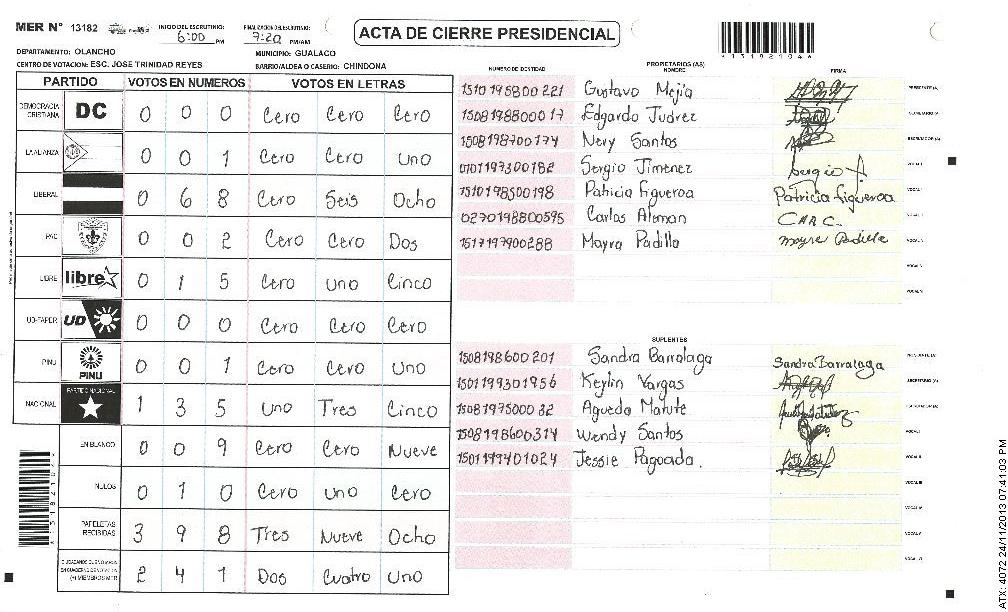 MER N° 13182 INICIO DEL ESCRUTINIO: 6:00 PM FINALIZACION DEL ESCRUTINIO: 7:20 PM/AM
ACTA DE CIERRE PRESIDENCIAL
DEPARTAMENTO: OLANCHO MUNICIPIO: GUALACO
CENTRO DE VOTACION: ESC. JOSE TRINIDAD REYES BARRIO/ALDEA O CASERIO: CHINDONA
PARTIDO VOTOS EN NUMEROS VOTOS EN LETRAS
DEMOCRACIA CRISTIANA DC 0 0 0 Cero Cero Cero
LA ALIANZA 0 0 1 Cero Cero Uno
LIBERAL 0 6 8 Cero Seis Ocho
PAC 0 0 2 Cero Cero Dos
LIBRE libre 0 1 5 Cero Uno Cinco
UD-FAPER UD 0 0 0 Cero Cero Cero
PINU PINU 0 0 1 Cero Cero Uno
NACIONAL PARTIDO NACIONAL 1 3 5 Uno Tres Cinco
EN BLANCO 0 0 9 Cero Cero Nueve
NULOS 0 1 0 Cero Uno Cero
PAPELETAS RECIBIDAS 3 9 8 Tres Nueve Ocho
2 4 1 Dos Cuatro Uno
PROPIETARIOS (AS)
NUMERO DE IDENTIDAD NOMBRE FIRMA
1510195800221 Gustavo Mejia PRESIDENTE (A)
1508198800017 Edgardo Juarez SECRETARIO (A)
1508198700174 Nery Santos ESCRUTADOR (A)
0101197300182 Sergio Jimenez Sergio J
1510198500198 Patricia Figueroa Patricia Figueroa
0270198800595 Carlos Aleman
1517197900288 Mayra Padilla Mayra Padilla
SUPLENTES
1508198600201 Sandra Barralaga Sandra Barralaga
1501199301956 Keylin Vargas SECRETARIO (A)
1508197500032 Agueda Matute ESCRUTADOR (A)
1508198600314 Wendy Santos
1501199401024 Jessie Pagoada.
ATX: 4072 24/11/2013 07:41:03 PM